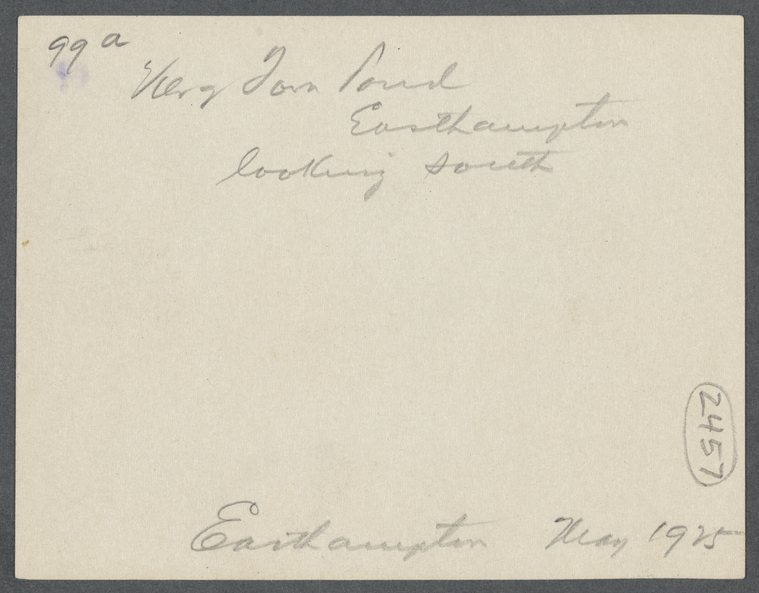 99 a
Pond
Easthampton
looking south
2457
Easthampton May 1925